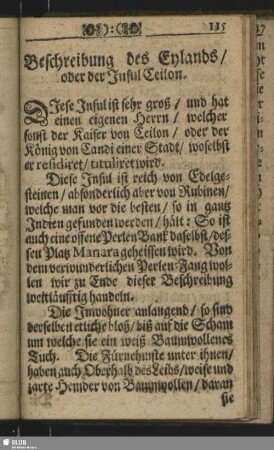 ):( 115
Beschreibung des Eylands/
oder der Insul Ceilon.
DIese Insul ist sehr groß/ und hat
einen eigenen Herrn/ welcher
sonst der Kaiser von Ceilon/ oder der
König von Candi einer Stadt/ woselbst
er residiret/ tituliret wird.
Diese Insul ist reich von Edelge-
steinen/ absonderlich aber von Rubinen/
welche man vor die besten/ so in gantz
Indien gefunden werden/ hält: So ist
auch eine offene Perlen Banck daselbst/ des-
sen Platz Manara geheissen wird. Von
dem verwunderlichen Perlen-Fang wol-
len wir zu Ende dieser Beschreibung
weitläufftig handeln.
Die Inwohner anlangend/ so sind
derselben etliche bloß/ biß auf die Scham
um welche sie ein weiß Baumwollenes
Tuch. Die Fürnehmste unter ihnen/
haben auch Oberhalb des Leibs/ weise und
zarte Hemder von Baumwollen/ daran
sie
SLUB